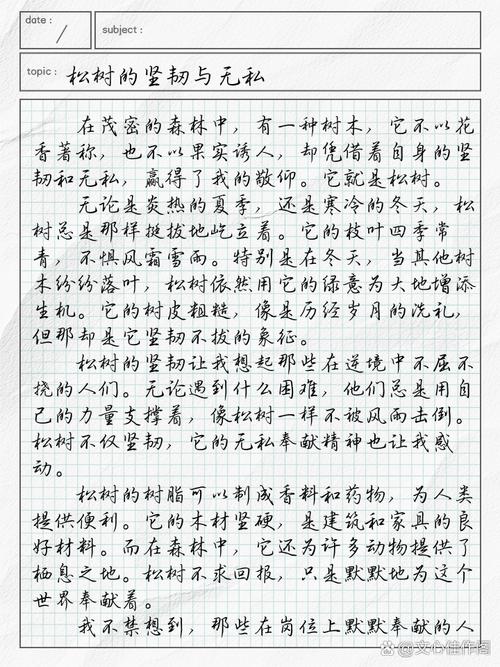 date：
subject：
topic： 松树的坚韧与无私
在茂密的森林中，有一种树木，它不以花
香著称，也不以果实诱人，却凭借着自身的坚
韧和无私，赢得了我的敬仰。它就是松树。
无论是炎热的夏季，还是寒冷的冬天，松
树总是那样挺拔地屹立着。它的枝叶四季常
青，不惧风霜雪雨。特别是在冬天，当其他树
木纷纷落叶，松树依然用它的绿意为大地增添
生机。它的树皮粗糙，像是历经岁月的洗礼，
但那却是它坚韧不拔的象征。
松树的坚韧让我想起那些在逆境中不屈不
挠的人们。无论遇到什么困难，他们总是用自
己的力量支撑着，像松树一样不被风雨击倒。
松树不仅坚韧，它的无私奉献精神也让我感
动。
松树的树脂可以制成香料和药物，为人类
提供便利。它的木材坚硬，是建筑和家具的良
好材料。而在森林中，它还为许多动物提供了
栖息之地。松树不求回报，只是默默地为这个
世界奉献着。
我不禁想到，那些在岗位上默默奉献的人
@文心佳作阁